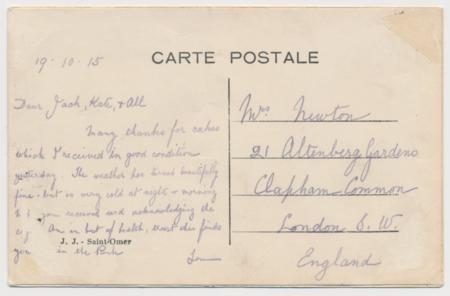 CARTE POSTALE
19·10·15
Dear Jack, Kate, & All
Many thanks for cakes
which I received in good condition
yesterday. The weather has turned beautifully
fine - but is very cold at night & morning
you received and acknowledging the
Am in best of health, trust this finds
you in the Pink
Tom
J. J. - Saint-Omer
Mrs Newton
21 Altenberg Gardens
Clapham Common
London S. W.
England